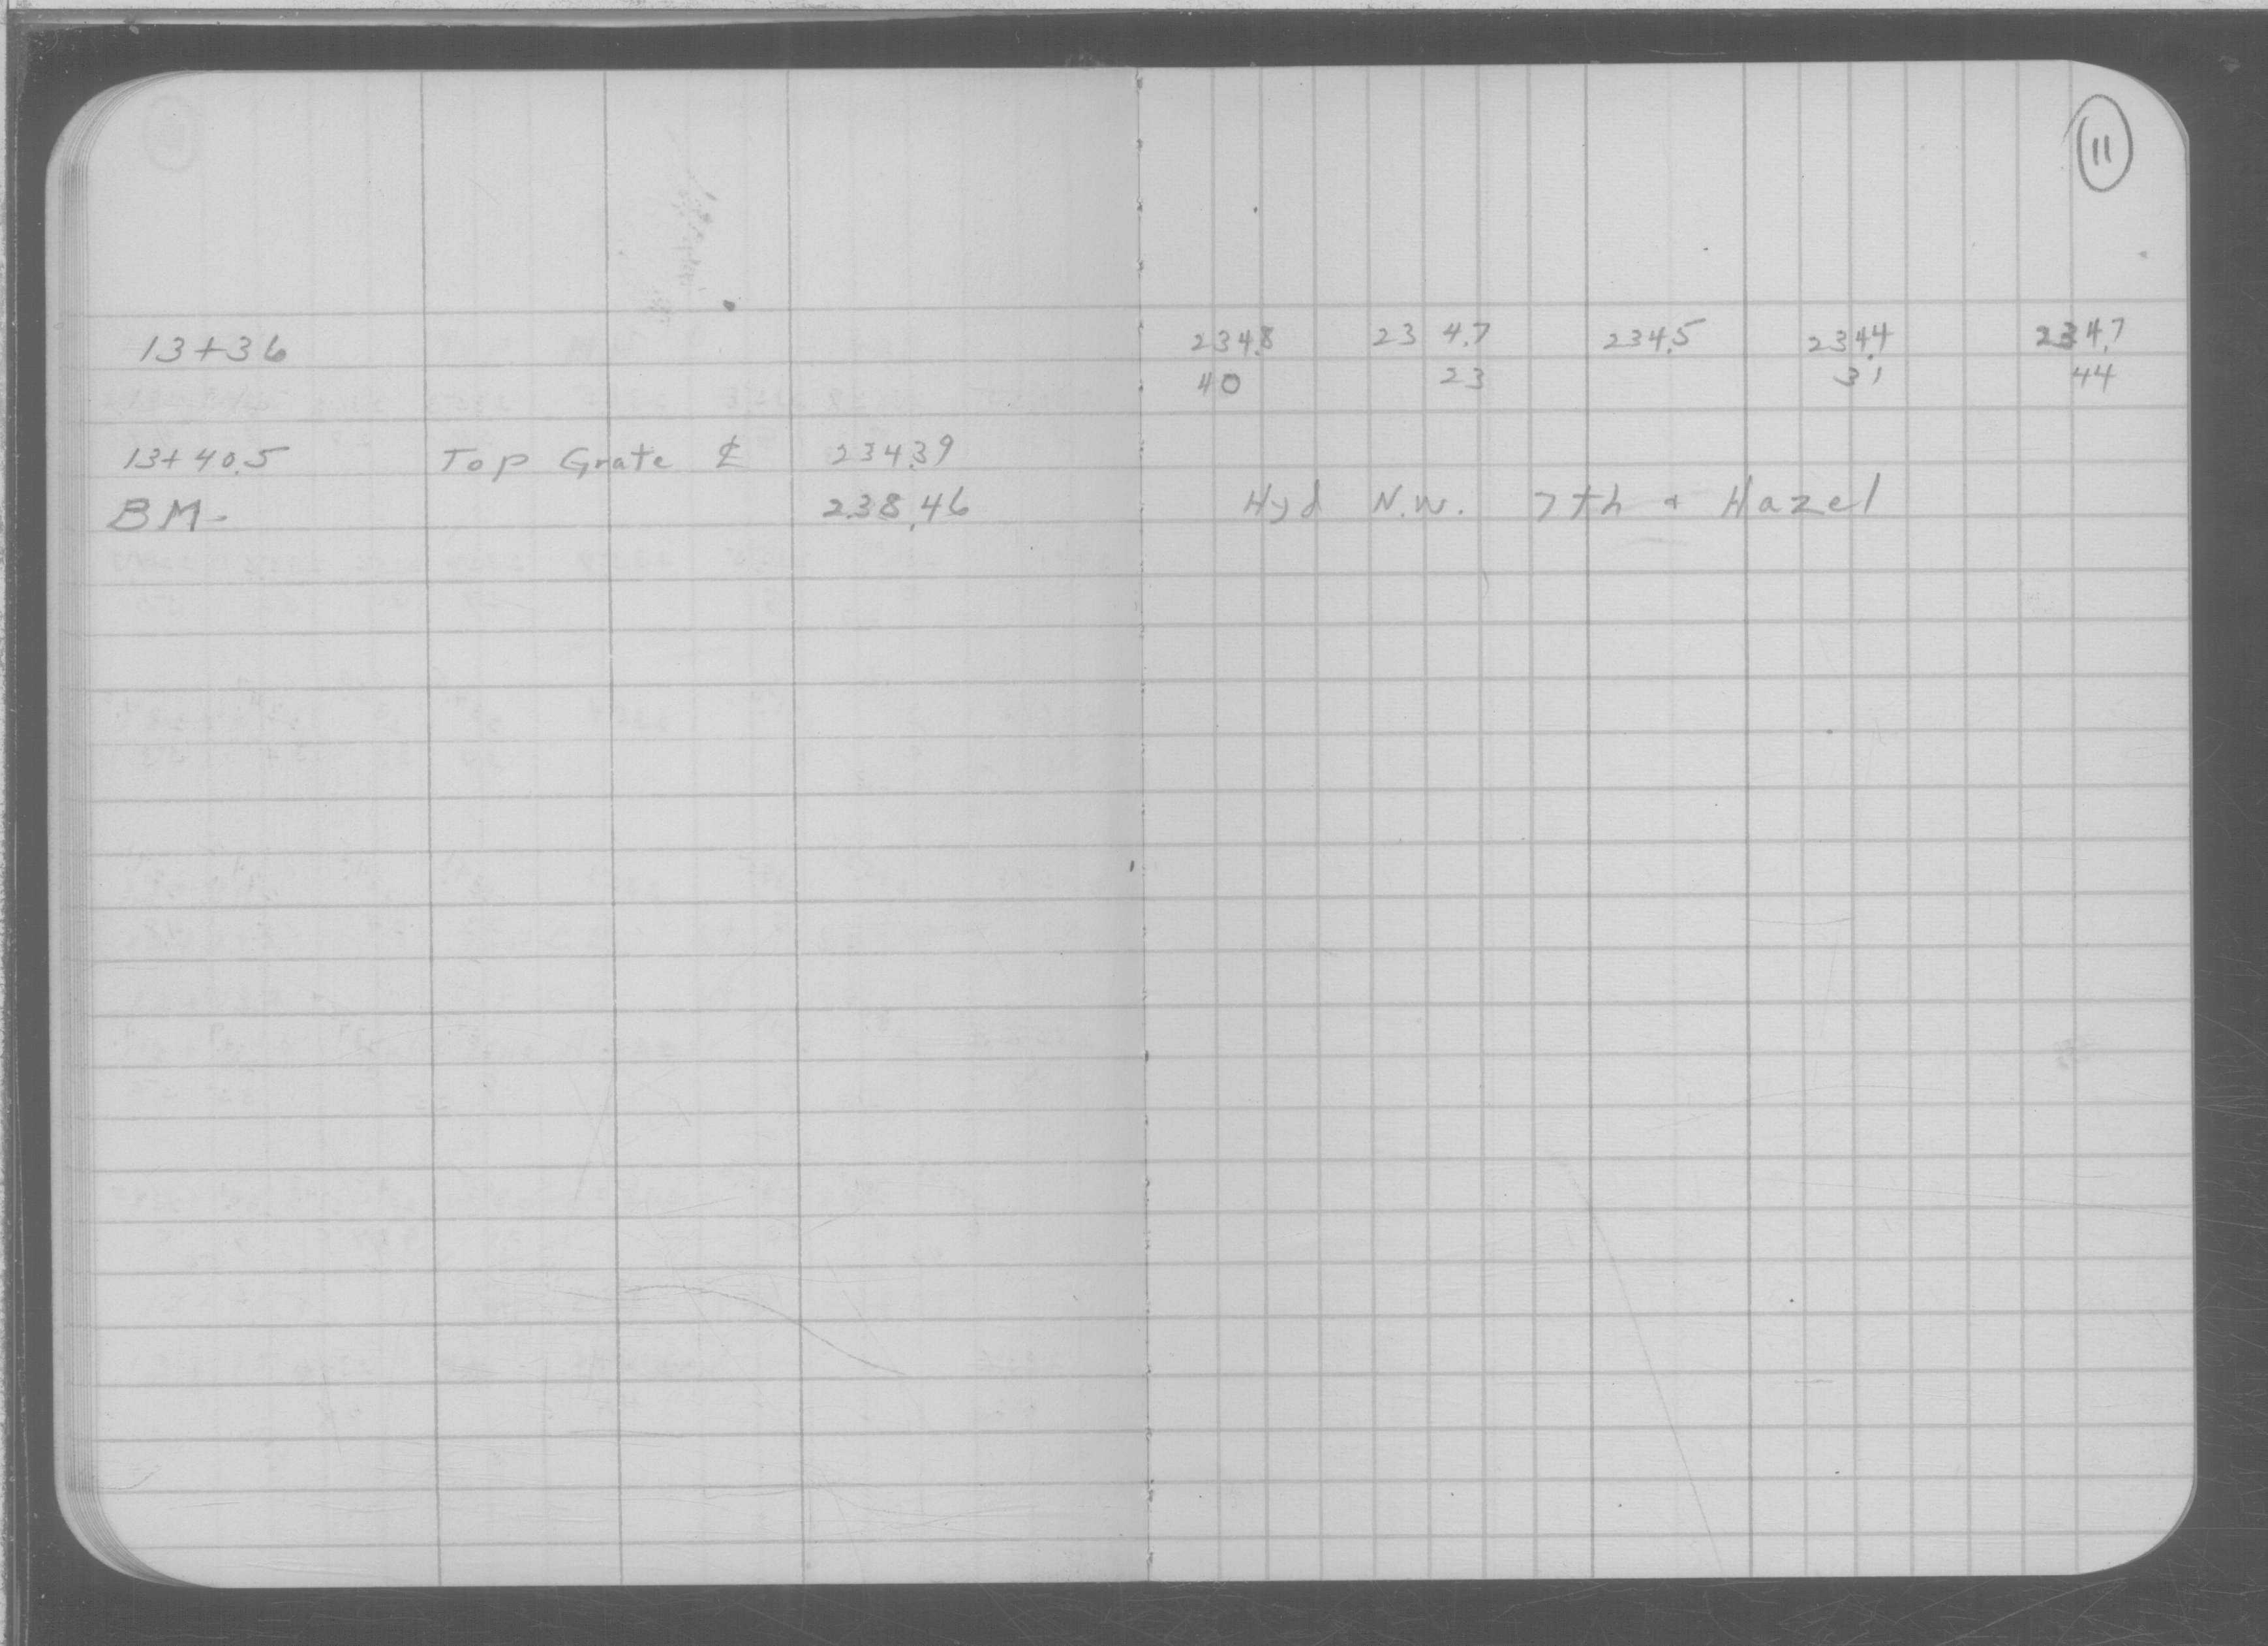 11
13+36 234.8 234.7 234.5 234.4 234.7
40 23 31 44
13+40.5 Top Grate ℄ 234.39
BM. 238.46 Hyd N.W. 7th & Hazel